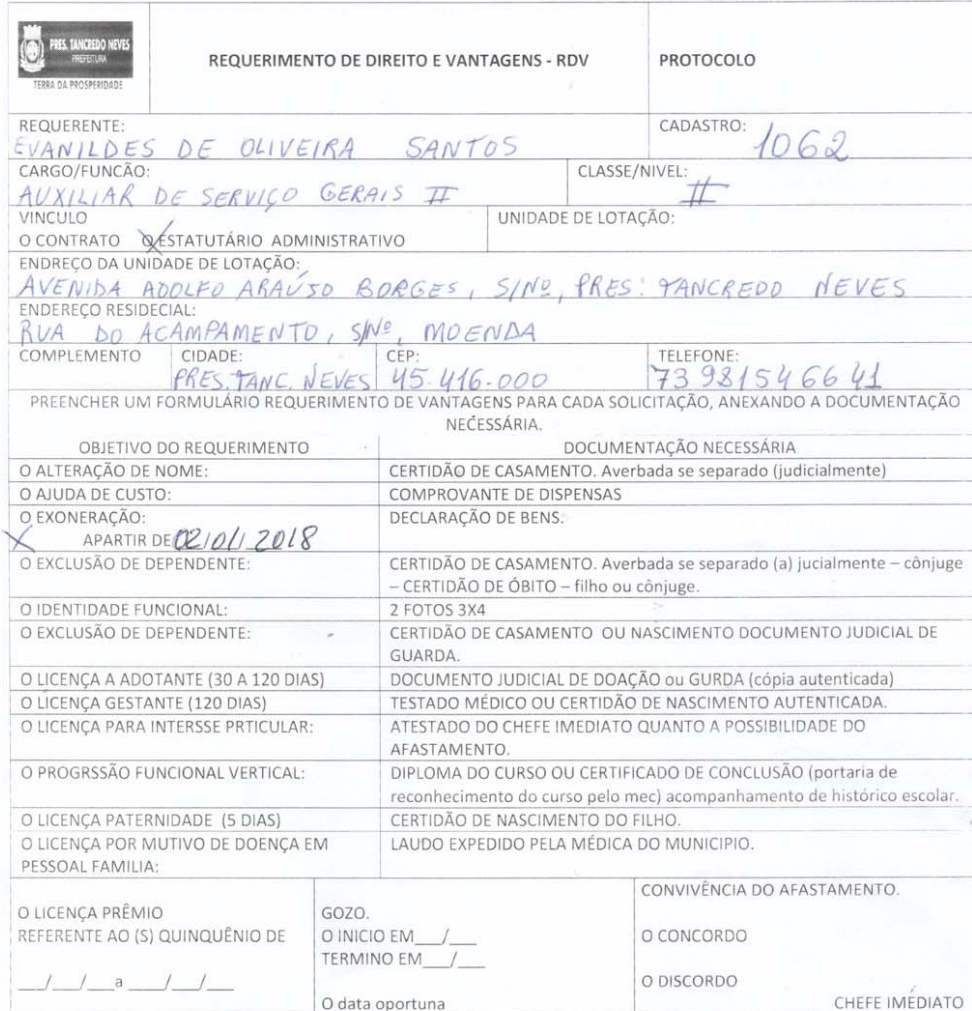 PRES. TANCREDO NEVES
PREFEITURA
TERRA DA PROSPERIDADE
REQUERIMENTO DE DIREITO E VANTAGENS - RDV
PROTOCOLO
REQUERENTE:
EVANILDES DE OLIVEIRA SANTOS
CADASTRO: 1062
CARGO/FUNCÃO:
AUXILIAR DE SERVIÇO GERAIS II
CLASSE/NIVEL:
II
VINCULO
O CONTRATO O ESTATUTÁRIO ADMINISTRATIVO
UNIDADE DE LOTAÇÃO:
ENDREÇO DA UNIDADE DE LOTAÇÃO:
AVENIDA ADOLFO ARAÚJO BORGES, S/Nº, PRES: TANCREDO NEVES
ENDEREÇO RESIDECIAL:
RUA DO ACAMPAMENTO, S/Nº, MOENDA
COMPLEMENTO
CIDADE:
PRES. TANC. NEVES
CEP:
45.416.000
TELEFONE:
73 981546641
PREENCHER UM FORMULÁRIO REQUERIMENTO DE VANTAGENS PARA CADA SOLICITAÇÃO, ANEXANDO A DOCUMENTAÇÃO
NECESSÁRIA.
OBJETIVO DO REQUERIMENTO
DOCUMENTAÇÃO NECESSÁRIA
O ALTERAÇÃO DE NOME:
CERTIDÃO DE CASAMENTO. Averbada se separado (judicialmente)
O AJUDA DE CUSTO:
COMPROVANTE DE DISPENSAS
O EXONERAÇÃO:
X APARTIR DE 02/01/2018
DECLARAÇÃO DE BENS.
O EXCLUSÃO DE DEPENDENTE:
CERTIDÃO DE CASAMENTO. Averbada se separado (a) jucialmente – cônjuge
– CERTIDÃO DE ÓBITO – filho ou cônjuge.
O IDENTIDADE FUNCIONAL:
2 FOTOS 3X4
O EXCLUSÃO DE DEPENDENTE:
CERTIDÃO DE CASAMENTO OU NASCIMENTO DOCUMENTO JUDICIAL DE
GUARDA.
O LICENÇA A ADOTANTE (30 A 120 DIAS)
DOCUMENTO JUDICIAL DE DOAÇÃO ou GURDA (cópia autenticada)
O LICENÇA GESTANTE (120 DIAS)
TESTADO MÉDICO OU CERTIDÃO DE NASCIMENTO AUTENTICADA.
O LICENÇA PARA INTERSSE PRTICULAR:
ATESTADO DO CHEFE IMEDIATO QUANTO A POSSIBILIDADE DO
AFASTAMENTO.
O PROGRSSÃO FUNCIONAL VERTICAL:
DIPLOMA DO CURSO OU CERTIFICADO DE CONCLUSÃO (portaria de
reconhecimento do curso pelo mec) acompanhamento de histórico escolar.
O LICENÇA PATERNIDADE (5 DIAS)
CERTIDÃO DE NASCIMENTO DO FILHO.
O LICENÇA POR MUTIVO DE DOENÇA EM
PESSOAL FAMILIA:
LAUDO EXPEDIDO PELA MÉDICA DO MUNICIPIO.
O LICENÇA PRÊMIO
REFERENTE AO (S) QUINQUÊNIO DE
___/___/___a ____/___/___
GOZO.
O INICIO EM___/___
TERMINO EM___/___
O data oportuna
CONVIVÊNCIA DO AFASTAMENTO.
O CONCORDO
O DISCORDO
CHEFE IMEDIATO